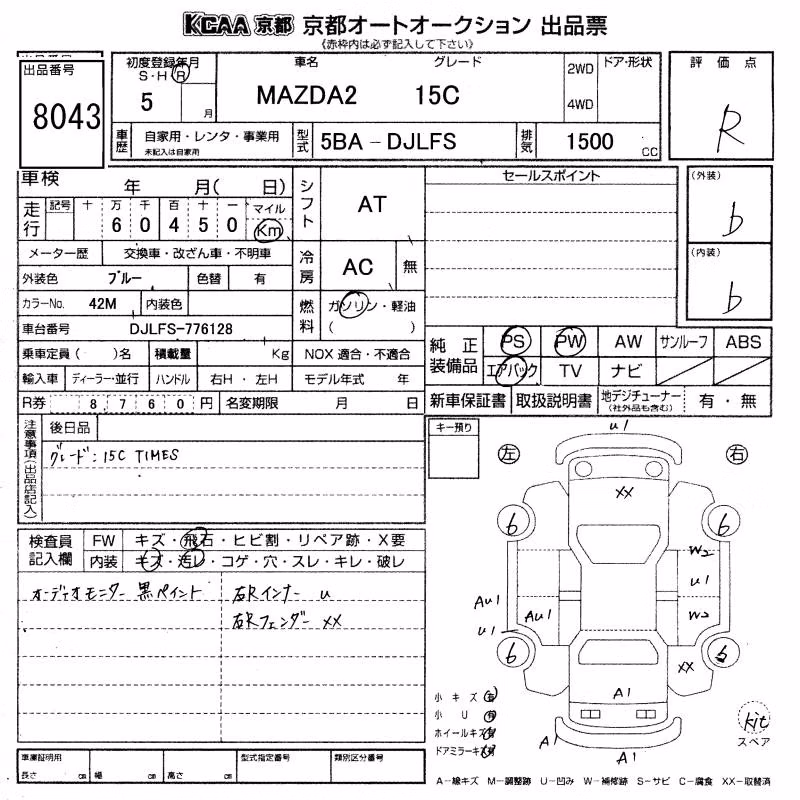 KCAA 京都 京都オートオークション 出品票
《赤枠内は必ず記入して下さい》
出品番号
8043
初度登録年月
S・H・R
5 月
車名 グレード
MAZDA2 15C
2WD
4WD
ドア・形状
評価点
R
車歴 自家用・レンタ・事業用
未記入は自家用
型式 5BA－DJLFS
排気 1500 CC
車検 年 月( 日)
走行 記号 十 万 千 百 十 一 マイル
6 0 4 5 0 Km
シフト AT
セールスポイント
(外装)
b
(内装)
b
メーター歴 交換車・改ざん車・不明車
冷房 AC 無
外装色 ブルー 色替 有
カラーNo. 42M 内装色
燃料 ガソリン・軽油
( )
車台番号 DJLFS-776128
乗車定員( )名 積載量 Kg NOX 適合・不適合
輸入車 ディーラー・並行 ハンドル 右H・左H モデル年式 年
R券 8,760円 名変期限 月 日
純正装備品 PS PW AW サンルーフ ABS
エアバック TV ナビ
新車保証書 取扱説明書 地デジチューナー 有・無
(社外品も含む)
注意事項(出品店記入)
後日品
グレード:15C TIMES
キー預り
左 右
u1
XX
6 6
W2
u1
Au1 Au1 W2
u1
6 6
XX
A1
A1
A1
検査員記入欄
FW キズ・飛石・ヒビ割・リペア跡・X要
内装 キズ・汚レ・コゲ・穴・スレ・キレ・破レ
オーディオモニター 黒ペイント 右Rインナー u
右Rフェンダー XX
小キズ 有
小 U 有
ホイールキズ
ドアミラーキズ
kit
スペア
車庫証明用
長さ cm 幅 cm 高さ cm
型式指定番号 類別区分番号
A－線キズ M－調整跡 U－凹み W－補修跡 S－サビ C－腐食 XX－取替済